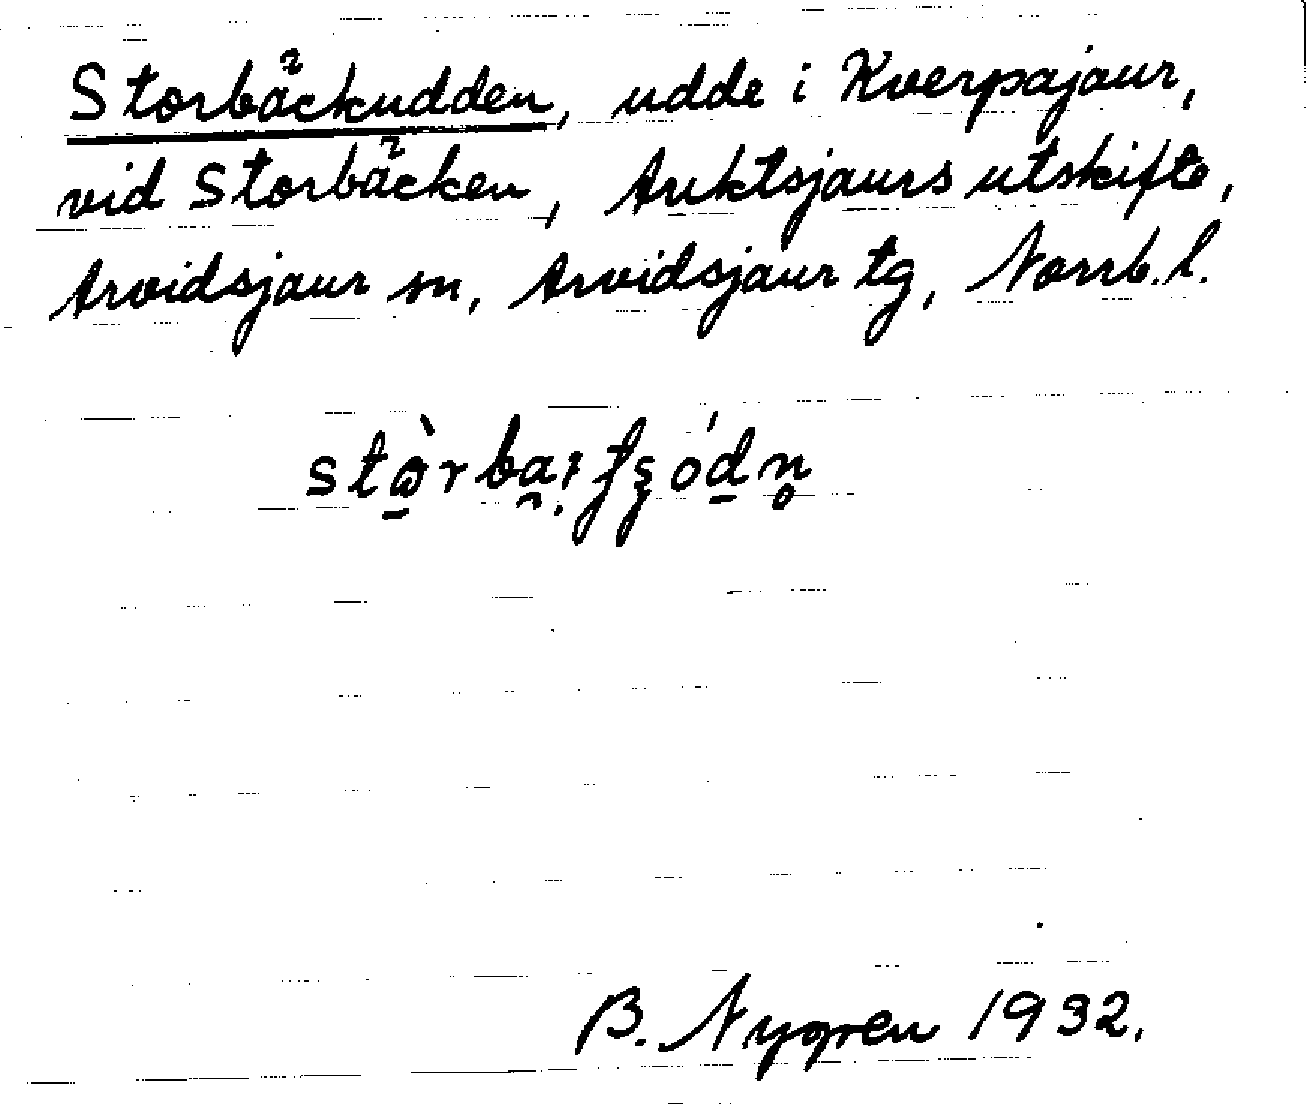 Storbäckudden, udde i Kverpajaur,
vid Storbäcken, Auktsjaurs utskifte,
Arvidsjaur sn, Arvidsjaur tg, Norrb. l.
B. Nygren 1932.